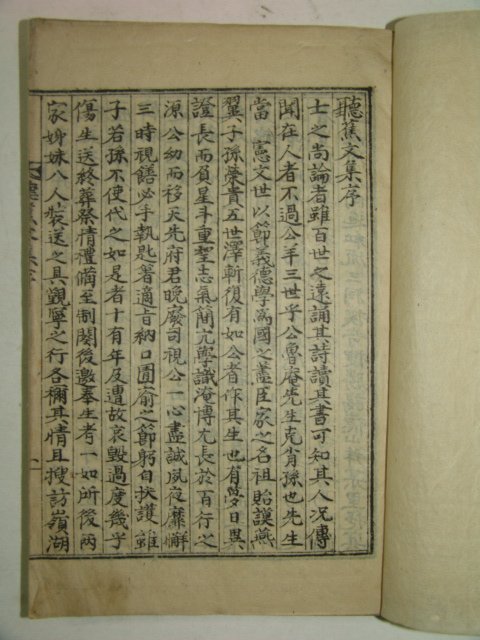 聽蕉文集序
士之尚論者雖百世之遠誦其詩讀其書可知其人況傳
聞在人者不過公年三世乎公魯庵先生克肖孫也先生
當 憲文世以節義德學爲國之藎臣家之名祖貽謨燕
翼子孫榮貴五世澤斬復有如公者作其生也有夢日異
證長而負星斗重聖志氣簡亢學識淹博尤長於百行之
源公幼而移天先府君晩廢司視公一心盡誠夙夜靡懈
三時視饍必手執匙箸適旨納口圊廁之節躬自扶護雖
子若孫不使代之如是者十有年及遭故哀毁過度幾乎
傷生送終葬祭情禮備至制闋後邀奉生考一如所後兩
家姊妹八人裝送之具覲寧之行各稱其情且搜訪嶺湖